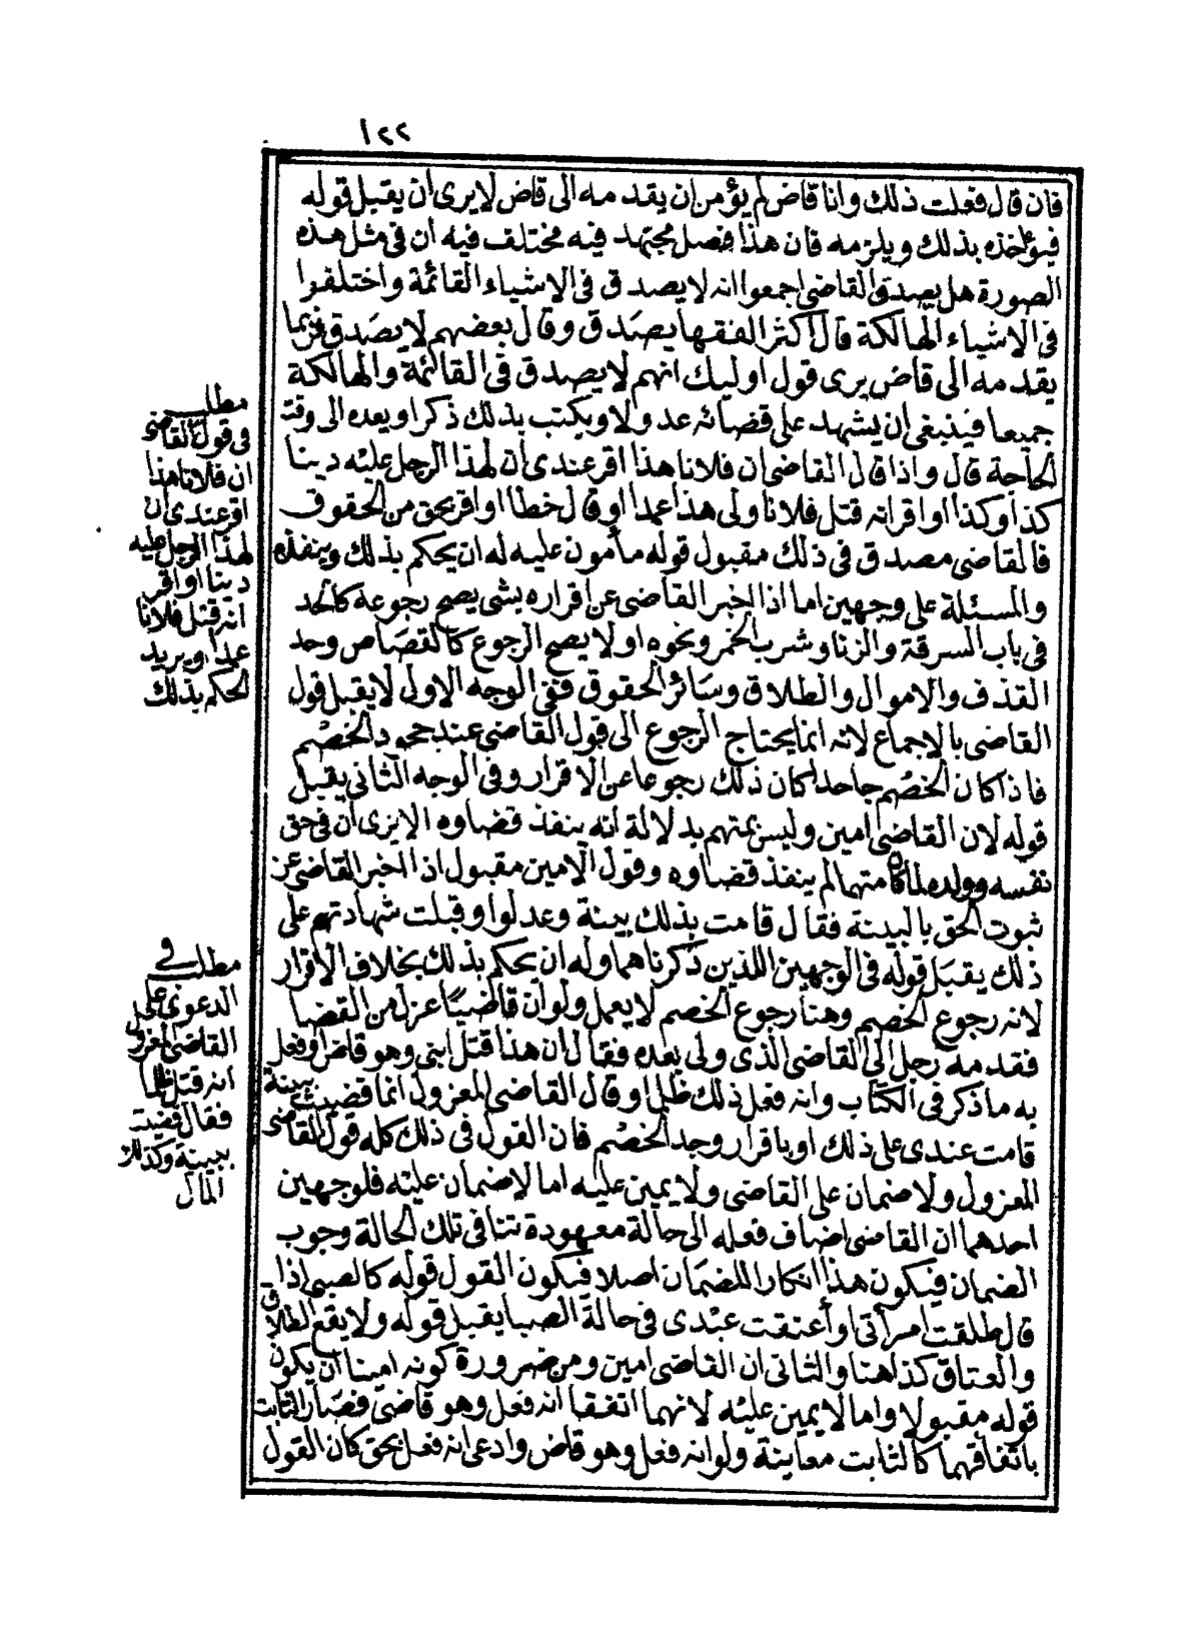 ١٢٢
فان قال فعلت ذلك وانا قاض لم يؤمن ان يقدمه الى قاض لا يرى ان يقبل قوله
فيؤاخذه بذلك ويلزمه فان هذا فصل مجتهد فيه مختلف فيه أن فى مثل هذه
الصورة هل يصدق القاضى اجمعوا انه لا يصدق فى الاشياء القائمة واختلفوا
فى الاشياء الهالكة قال أكثر الفقها يصدق وقال بعضهم لا يصدق فربما
يقدمه الى قاض يرى قول اوليك انهم لا يصدق فى القائمة والهالكة
جميعا فينبغى ان يشهد على قضائه عدولا ويكتب بذلك ذكرا ويعده الى وقت
الحاجة قال واذا قال القاضى ان فلانا هذا اقر عندى أن لهذا الرجل عليه دينا
كذا وكذا او اقر انه قتل فلانا ولى هذا عمدا او قال خطا او اقر بحق من الحقوق
فالقاضى مصدق فى ذلك مقبول قوله مأمون عليه له ان يحكم بذلك وينفذه
والمسئلة على وجهين اما اذا اخبر القاضى عن اقراره بشى يصح رجوعه كالحد
فى باب السرقة والزنا وشرب الخمر ونحوه او لا يصح الرجوع كالقصاص وحد
القذف والاموال والطلاق وسائر الحقوق ففى الوجه الاول لا يقبل قول
القاضى بالاجماع لانه انما يحتاج الرجوع الى قول القاضى عند جحود الخصم
فاذا كان الخصم جاحدا كان ذلك رجوعا عن الاقرار وفى الوجه الثانى يقبل
قوله لان القاضى امين وليس بمتهم بدلالة أنه ينفذ قضاوه الا يرى ان فى حق
نفسه وولده لما كان متهما لم ينفذ قضاوه وقول الامين مقبول اذا اخبر القاضى عن
ثبوت الحق بالبينة فقال قامت بذلك بينة وعدلوا وقبلت شهادتهم على
ذلك يقبل قوله فى الوجهين اللذين ذكرناهما وله ان يحكم بذلك بخلاف الاقرار
لانه رجوع الخصم وهنا رجوع الخصم لا يعمل ولو ان قاضيًا عزل من القضا
فقدمه رجل الى القاضى الذى ولى بعده فقال ان هذا قتل ابنى وهو قاض او فعل
به ما ذكر فى الكتاب وانه فعل ذلك ظلما وقال القاضى المعزول انما قضيت ببينة
قامت عندى على ذلك او باقرار وجد الخصم فان القول فى ذلك كله قول القاضى
المعزول ولا ضمان على القاضى ولا يمين عليه اما لا ضمان عليه فلوجهين
احدهما ان القاضى اضاف فعله الى حالة معهودة تنافى تلك الحالة وجوب
الضمان فيكون هذا انكارا للضمان اصلا فيكون القول قوله كالصبى اذا
قال طلقت امرأتى او أعتقت عبدى فى حالة الصبا يقبل قوله ولا يقع الطلاق
والعتاق كذا هنا والثانى ان القاضى امين ومن ضرورة كونه امينا ان يكون
قوله مقبولا واما لا يمين عليه لانهما اتفقا انه فعل وهو قاضى فصار الثابت
باتفاقهما كالثابت معاينة ولو انه فعل وهو قاض وادعى انه فعل بحق كان القول
مطلب
فى قول القاضى
ان فلانا هذا
اقر عندى ان
لهذا الرجل عليه
دينا او اقر
انه قتل فلانا
عمدا ويريد
الحكم بذلك
مطلب فى
الدعوى على
القاضى المعزول
انه قتل ظلما
فقال قضيت
ببينة وكذلك
المال